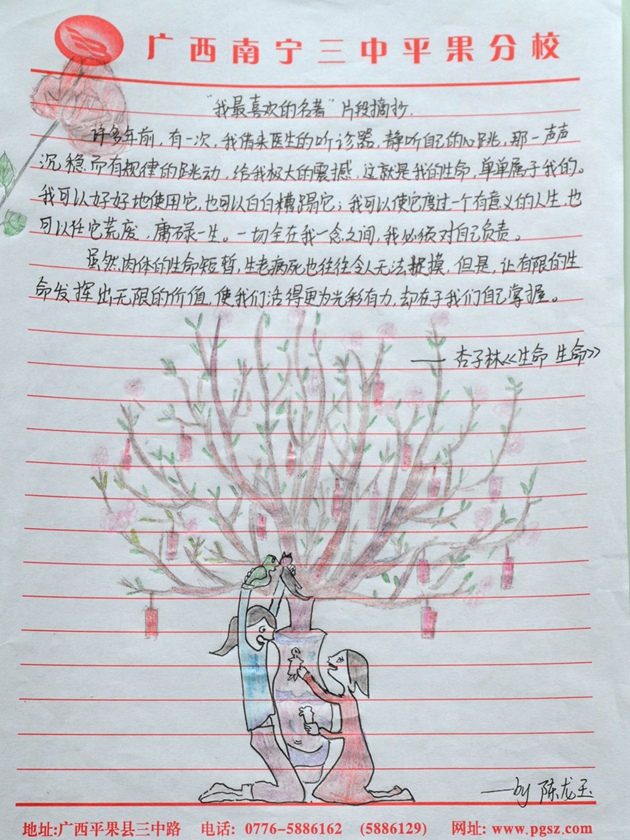 广西南宁三中平果分校
“我最喜欢的名著”片段摘抄.
许多年前,有一次,我借来医生的听诊器,静听自己的心跳,那一声声
沉稳而有规律的跳动,给我极大的震撼,这就是我的生命,单单属于我的。
我可以好好地使用它,也可以白白糟蹋它;我可以使它度过一个有意义的人生,也
可以任它荒废,庸碌一生。一切全在我一念之间,我必须对自己负责。
虽然肉体的生命短暂,生老病死也往往令人无法捉摸,但是,让有限的生
命发挥出无限的价值,使我们活得更为光彩有力,却在于我们自己掌握。
——杏子林《生命 生命》
——by 陈龙玉
地址:广西平果县三中路 电话: 0776-5886162 (5886129) 网址: www.pgsz.com